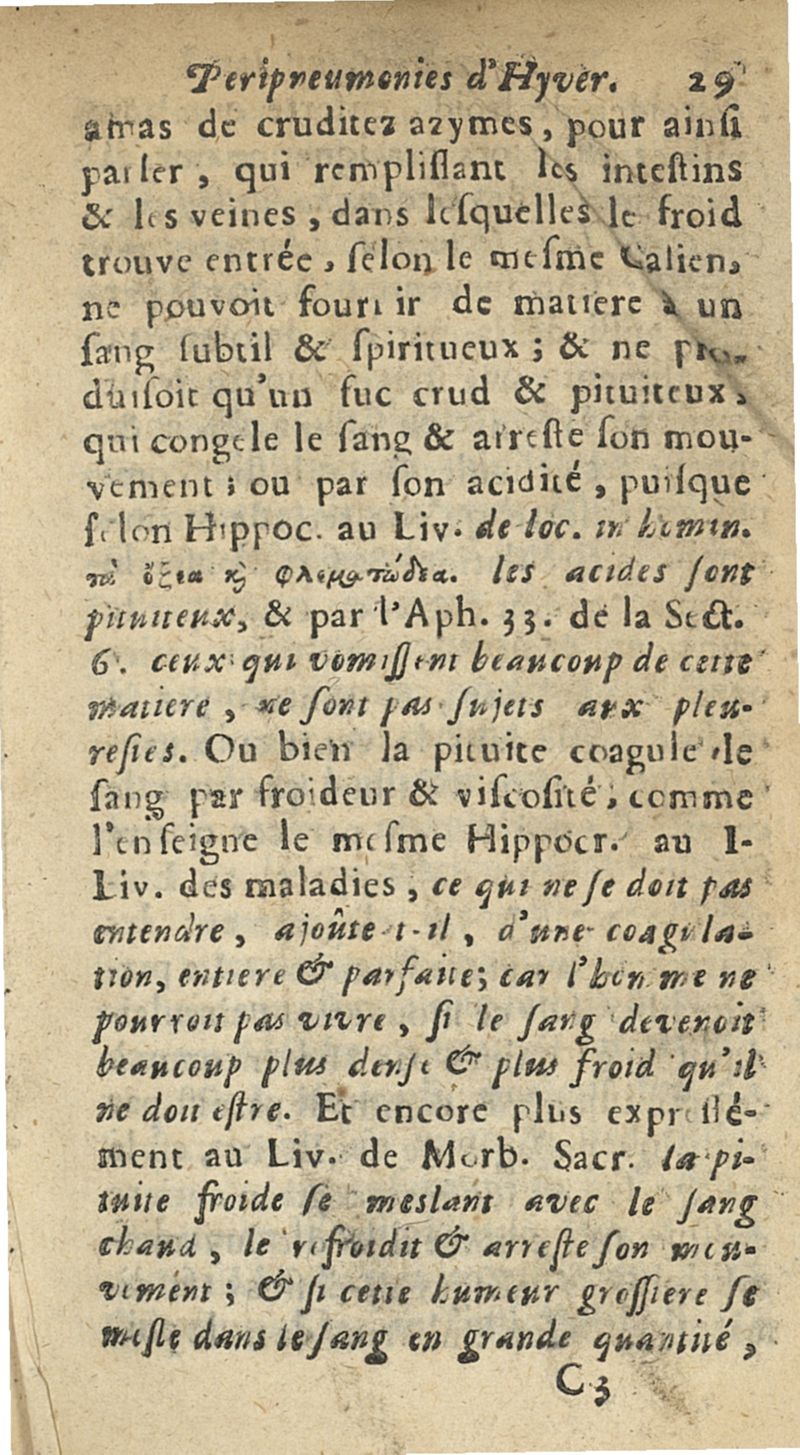 Peripneumonies d'Hyver. 29
amas de cruditez azymes, pour ainsi
parler, qui remplissant les intestins
& les veines, dans lesquelles le froid
trouve entrée, selon le mesme Galien,
ne pouvoit fournir de matiere à un
sang subtil & spiritueux; & ne pro-
duisoit qu'un suc crud & pituiteux,
qui congele le sang & arreste son mou-
vement; ou par son acidité, puisque
selon Hippoc. au Liv. de loc. in homin.
τὰ ὄξεα κỳ φλεγματώδεα. les acides sont
pituiteux, & par l'Aph. 33. de la Sect.
6. ceux qui vomissent beaucoup de cette
matiere, ne sont pas sujets aux pleu-
resies. Ou bien la pituite coagule le
sang par froideur & viscosité, comme
l'enseigne le mesme Hippocr. au I-
Liv. des maladies, ce qui ne se doit pas
entendre, ajoûte-t-il, d'une coagula-
tion, entiere & parfaite; car l'homme ne
pourroit pas vivre, si le sang devenoit
beaucoup plus dense & plus froid qu'il
ne doit estre. Et encore plus expressé-
ment au Liv. de Morb. Sacr. la pi-
tuite froide se meslant avec le sang
chaud, le refroidit & arreste son mou-
vement; & si cette humeur grossiere se
mesle dans le sang en grande quantité,
C 3